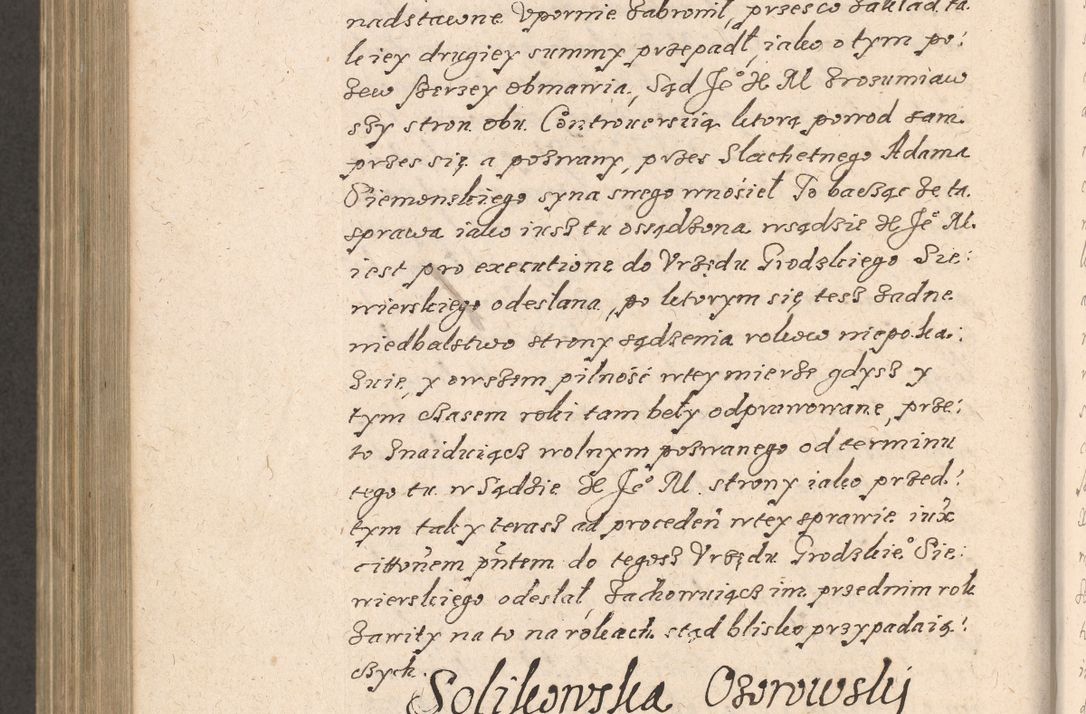 nadstawne Upornie zabronił, przesco zakład ta
kiey drugiey summy przepadł, iako o tym po:
zew szerzey obmawia, Sąd Je° X M zrozumiaw
szy stron obu Controuersiią ktorą powod sam
przes się a pozwany, przes Slachetnego Adama
Siemonskiego syna swego wnosieł To bacząc że ta
sprawa iako iusz tu ossądzona w sądzie X Je° M.
iest pro executione do Vrzędu Grodzkiego Sie:
wierskiego odesłana, po ktorym się tesz żadne
niedbalstwo strony sądzenia rokow niepoka:
zuie, y owszem pilność w tey mierze gdysz y
tym czasem roki tam beły odprawowane, prze:
to znaiduiącz wolnym pozwanego od terminu
tego tu w Sądzie X Je° M. strony iako przed:
tym tak y terasz ad proceden̄ w tey sprawie iux
cittōnem pn̄tem do tegosz Vrzędu Grodzkie° Sie:
wierskiego odesłał, zachowuiącz im przednim rok
zawity na to na rokach stąd blisko przypadaią:
czych.
Solikowska Ozorowskij